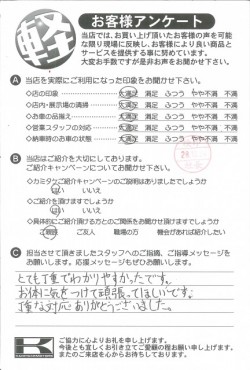 軽
お客様アンケート
当店では、お買い上げ頂いたお客様の声を可能
な限り現場に反映し、お客様により良い商品と
サービスを提供する事に努めています。
大変お手数ですが是非お声をお聞かせ下さい。
A 当店を実際にご利用になった印象をお聞かせ下さい。
◇店の印象 大満足 満足 ふつう やや不満 不満
◇店内・展示場の清掃 大満足 満足 ふつう やや不満 不満
◇お車の品揃え 大満足 満足 ふつう やや不満 不満
◇営業スタッフの対応 大満足 満足 ふつう やや不満 不満
◇納車時のお車の状態 大満足 満足 ふつう やや不満 不満
B 当店はご紹介を大切にしております。
ご紹介キャンペーンについてお聞かせ下さい。
◇カミタケご紹介キャンペーンのご説明はありましたでしょうか
はい いいえ
◇ご紹介を頂けますでしょうか
はい いいえ
◇具体的にご紹介頂ける方とのご関係をお聞かせ頂けますでしょうか
ご親戚 ご友人 職場の方 機会があれば紹介したい
C 担当させて頂きましたスタッフへのご指摘、ご指導メッセージを
お願いします。応援メッセージもぜひお願いします。
とても丁寧でわかりやすかったです。
お体に気をつけて頑張ってほしいです。
丁寧な対応ありがとうございました。
K
ご協力に心よりお礼を申し上げます。
今後とも宜しくお引き立てご愛顧の程お願い申し上げます。
またのご来店を心からお待ちしております。